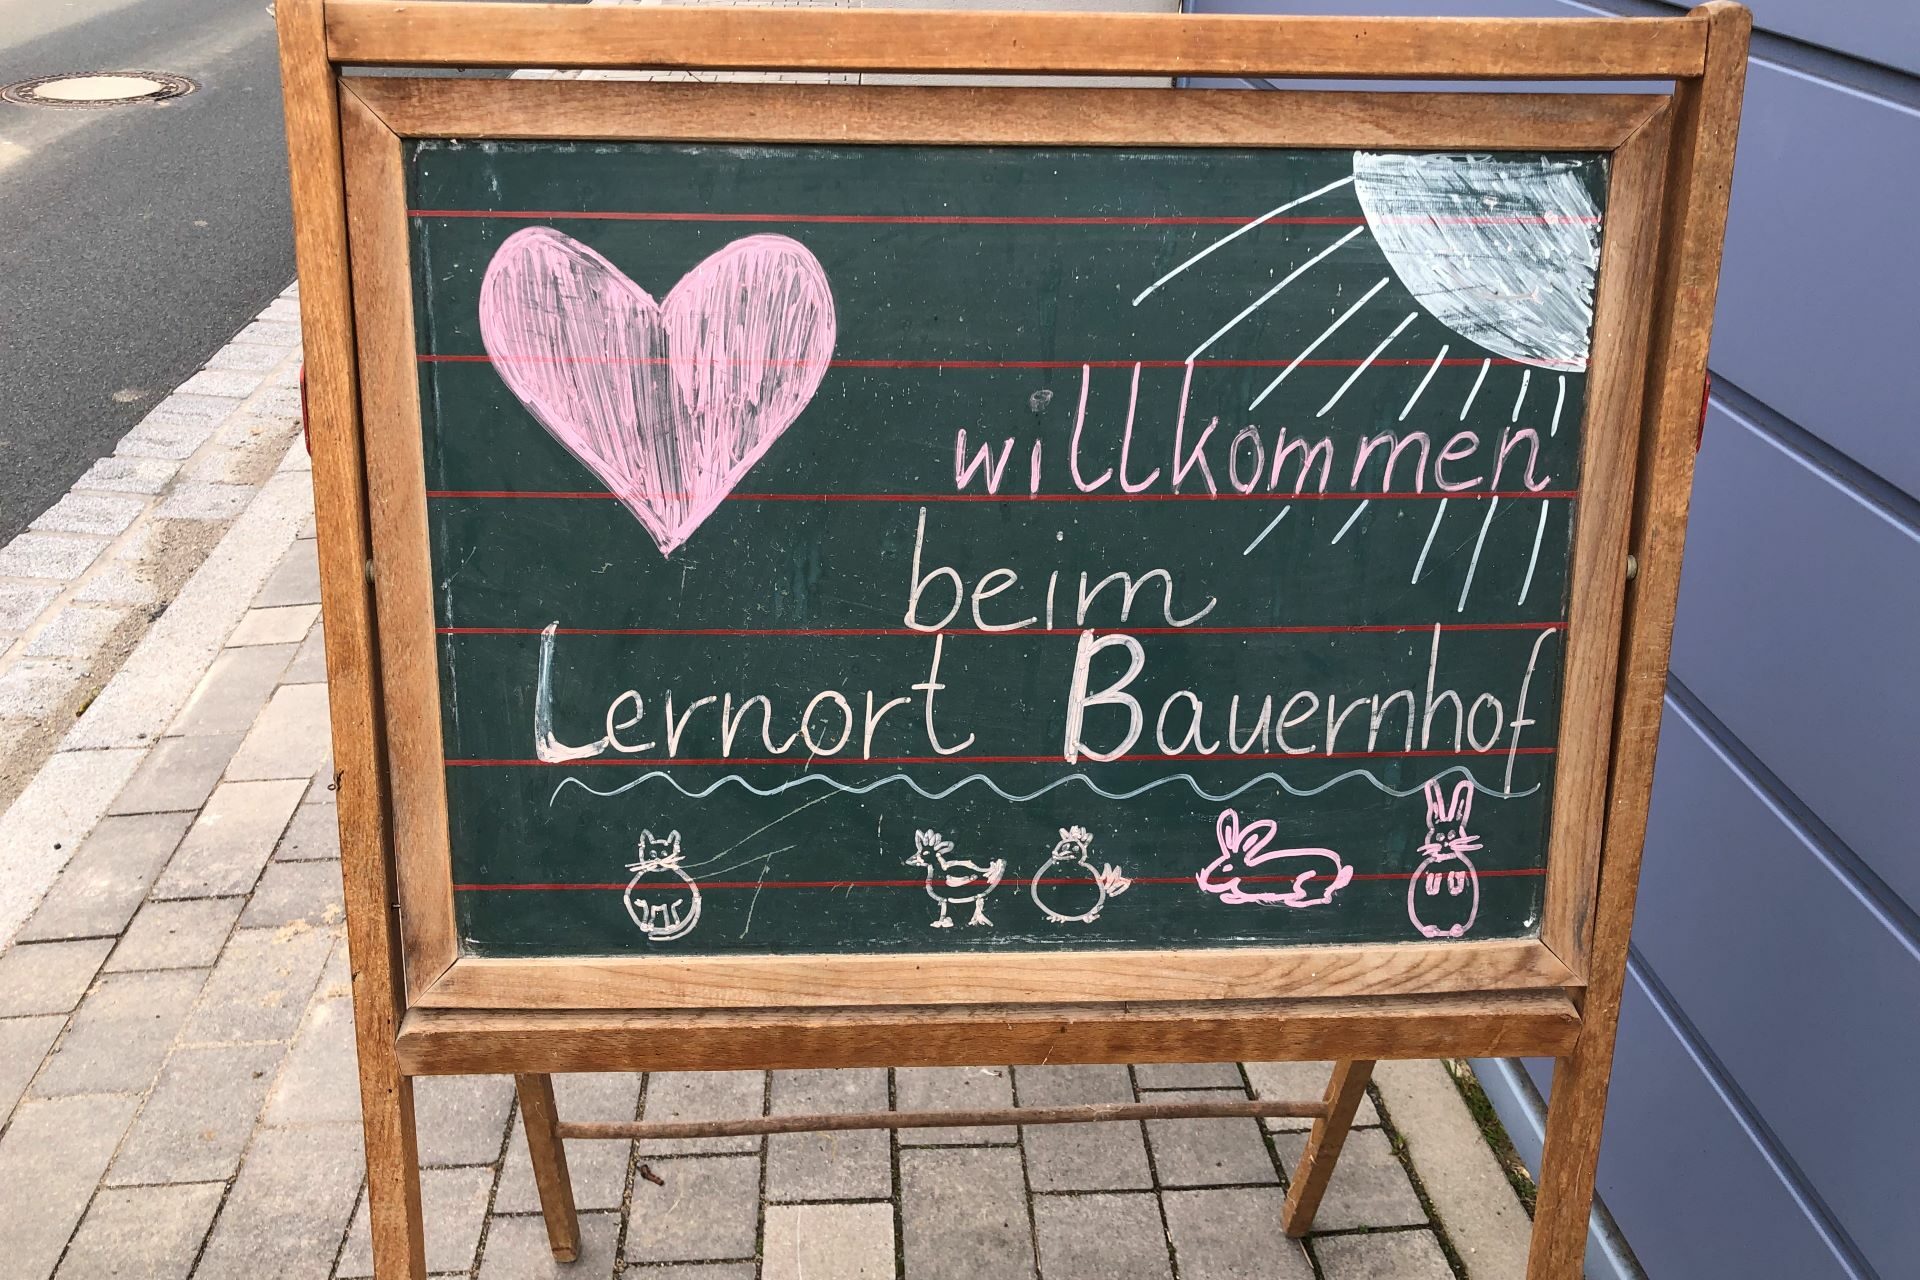 willkommen
beim
Lernort Bauernhof